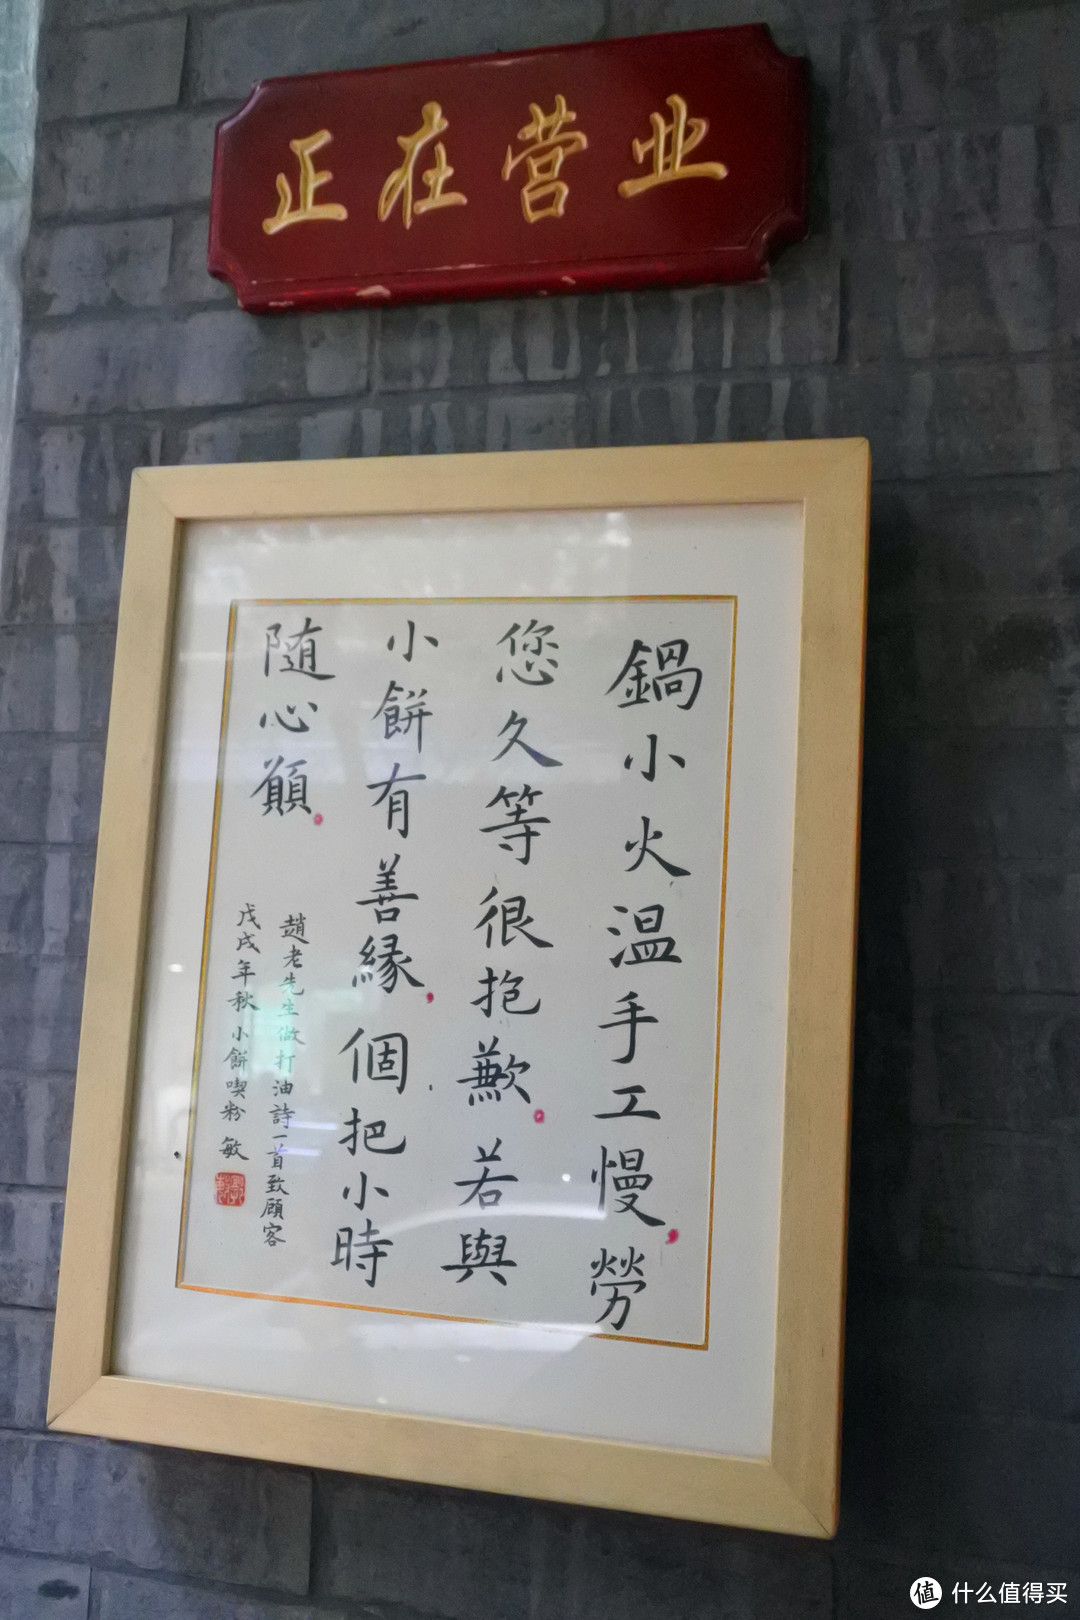 正在营业
鍋小火温手工慢勞
您久等很抱歉若與
小餅有善緣個把小時
随心願
趙老先生做打油詩一首致顧客
戊戌年秋小餅喫粉 敏
值 什么值得买